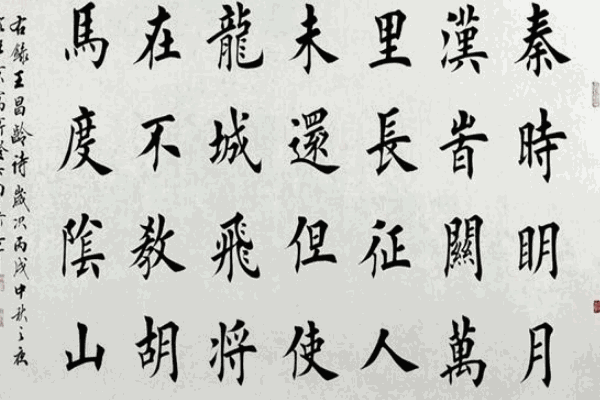 秦時眀月
漢旹關萬
里長征人
未還但使
龍城飛将
在不教胡
馬度陰山
右錄王昌齡诗歲次丙戌中秋之夜